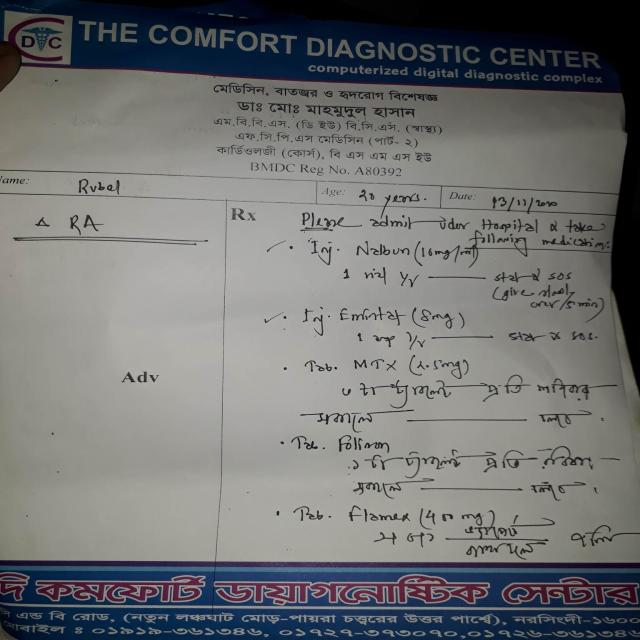 DC THE COMFORT DIAGNOSTIC CENTER
computerized digital diagnostic complex
মেডিসিন, বাতজ্বর ও হৃদরোগ বিশেষজ্ঞ
ডাঃ মোঃ মাহমুদুল হাসান
এম.বি.বি.এস. (ডি ইউ) বি.সি.এস. (স্বাস্থ্য)
এফ.সি.পি.এস মেডিসিন (পার্ট- ২)
কার্ডিওলজী (কোর্স), বি এস এম এস ইউ
BMDC Reg No. A80392
Name: Rubel Age: 20 years. Date:
△ RA
Rx
Please admit Hospital & take
following medications.
Inj. Nalbun (10mg/ml)
1 stat & sos
(give slowly
over /5 min)
Inj. (8mg)
1 amp stat & sos.
Adv
Tab. MTX (2.5mg)
৩ টা ট্যাবলেট প্রতি শনিবার
সকালে চলবে।
Tab. Folison
১ টা ট্যাবলেট প্রতি রবিবার
সকালে চলবে।
Tab. Flamex (400 mg)
দি কমফোর্ট ডায়াগনোষ্টিক সেন্টার
এন্ড বি রোড, (নতুন লঞ্চঘাট মোড়-পায়রা চত্ত্বরের উত্তর পার্শ্বে), নরসিংদী-১৬০০
মোবাইল : ০১৯১৯-৩৬১৩৪৬,